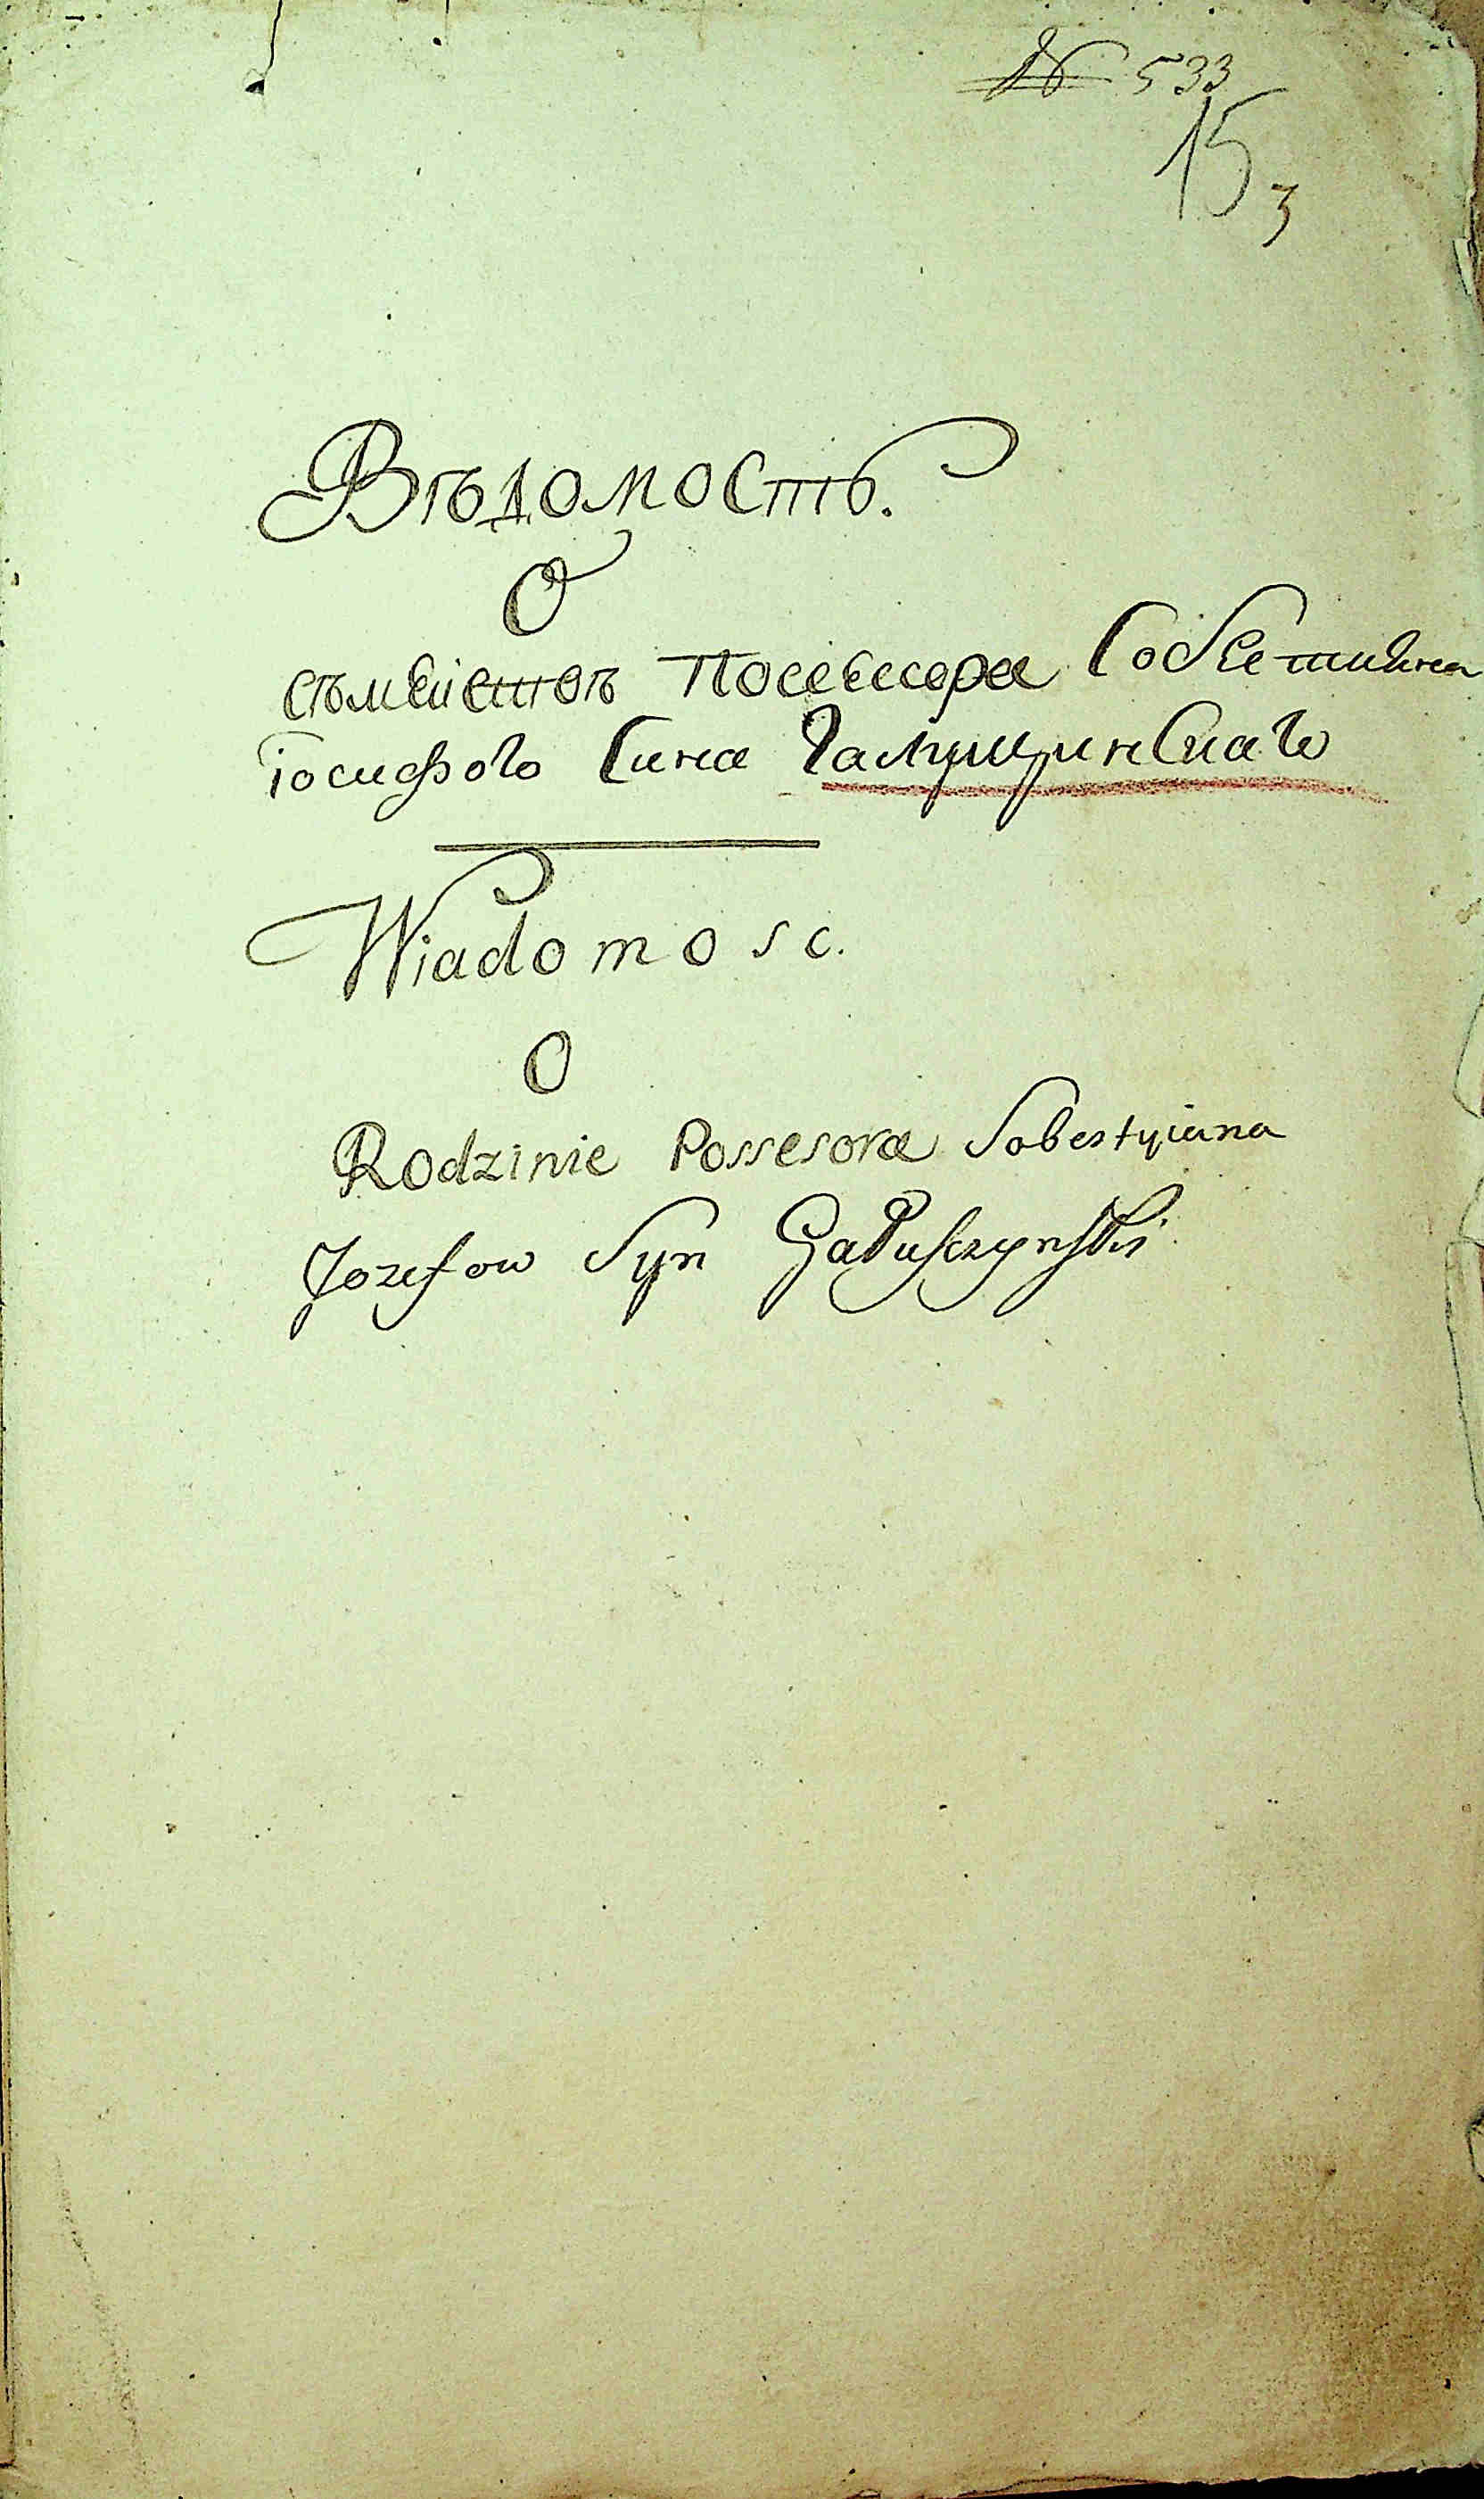 № 533
15
3
Вѣдомость.
О
сѣмействѣ Посессора Собестияна
іосифово Сина Галущинскаго
Wiadomosc.
O
Rodzinie Possesora Sobestyiana
Jozefow Syn Gałuszczynski